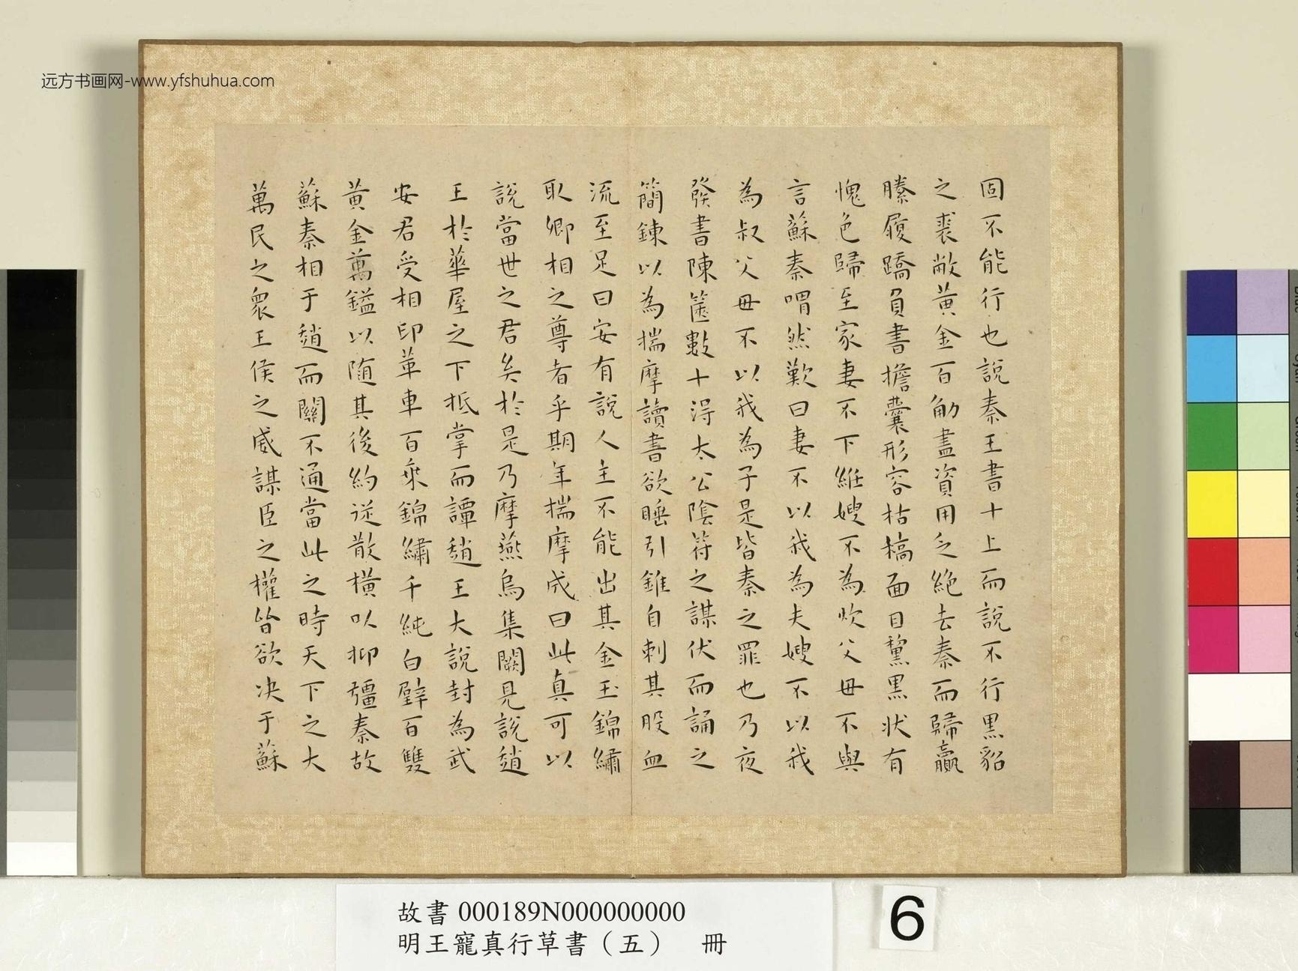 远方书画网-www.yfshuhua.com
固不能行也說秦王書十上而說不行黑貂
之裘敝黃金百觔盡資用乏絶去秦而歸羸
縢履蹻負書擔囊形容枯槁面目黧黑状有
愧色歸至家妻不下絍嫂不為炊父毋不與
言蘇秦喟然歎曰妻不以我為夫嫂不以我
為叔父毋不以我為子是皆秦之罪也乃夜
發書陳篋數十得太公陰符之謀伏而誦之
簡鍊以為揣摩讀書欲睡引錐自刺其股血
流至足曰安有說人主不能出其金玉錦繡
取卿相之尊者乎期年揣摩成曰此真可以
說當世之君矣於是乃摩燕烏集闕見說趙
王於華屋之下抵掌而譚趙王大說封為武
安君受相印革車百乘錦繡千純白璧百雙
黃金萬鎰以随其後約從散橫以抑彊秦故
蘇秦相于趙而關不通當此之時天下之大
萬民之衆王侯之威謀臣之權皆欲决于蘇
故書 000189N000000000
明王寵真行草書（五） 冊
6